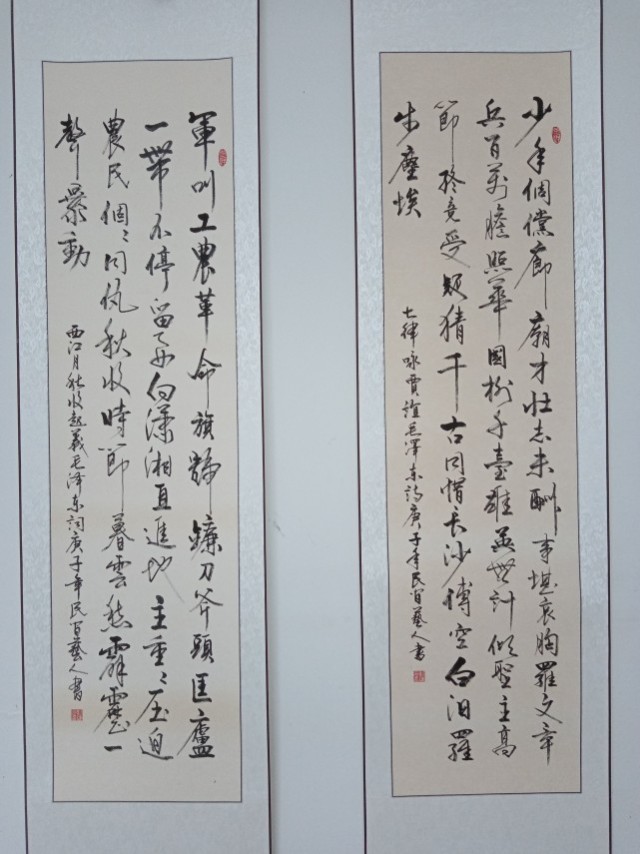 少年倜儻廊廟才壯志未酬事堪哀胸羅文章
兵百萬膽照華國樹千臺雄英無計傾聖主高
節終竟受疑猜千古同惜長沙傅空白汨羅
步塵埃
七律咏賈誼毛澤東詩庚子年民百藝人書
軍叫工農革命旗號鐮刀斧頭匡廬
一帶不停留要向瀟湘直進地主重〻壓迫
農民個〻同仇秋收時節暮雲愁霹靂一
聲暴動
西江月秋收起義毛泽东詞庚子年民百藝人書